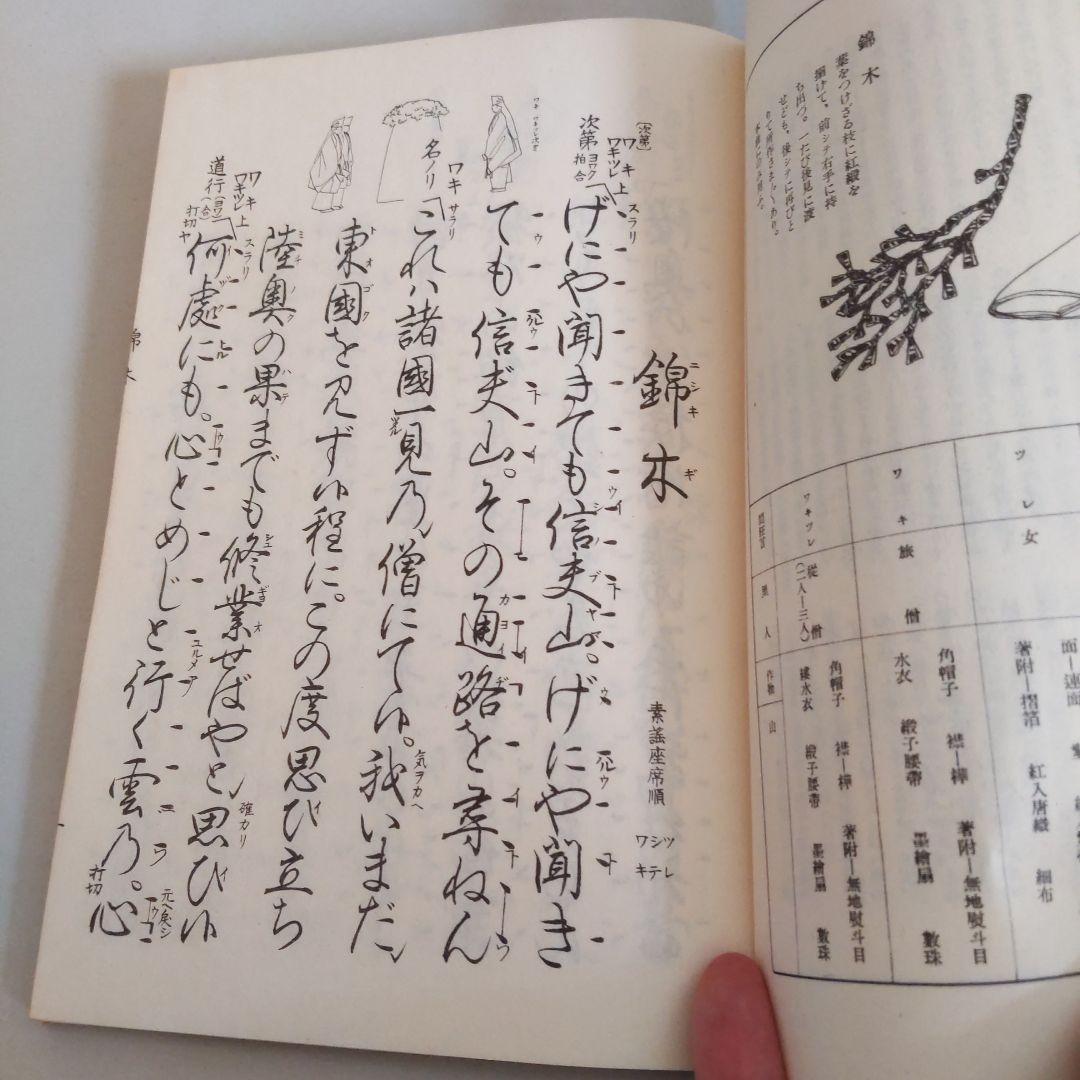 錦木
葉をつけざる枝に紅緞を
ち出づ。一たび後見に渡
せども、後シテに再びと
ツレ 女
面―連面
著附―摺箔 紅入唐織 細布
ワキ 旅僧
角帽子 襟―樺 著附―無地熨斗目
水衣 緞子腰帶 墨繪扇 數珠
ワキツレ 從僧(二人―三人)
角帽子 襟―樺 著附―無地熨斗目
縷水衣 緞子腰帶 墨繪扇 數珠
作物 山
錦木
ニシキギ
素謠座席順
ツレ
シテ
ワキ
〔次第〕
ワキ
ワキツレ 上
次第 ヨワク 拍合
スラリ
げにや聞きても信夫山。げにや聞き
ても信夫山。その通路を尋ねん
ワキ サラリ
名ノリ
これハ諸國一見乃僧にて候。我いまだ
氣ヲカヘ
東國を見ず候程に。この度思ひ立ち
陸奥の果までも修業せばやと思ひ候
確カリ
ワキ
ワキツレ 上
道行(ヨワ合) 打切ヤ
スラリ
何處にも。心とめじと行く雲乃。心
ユルメ
打切
錦木